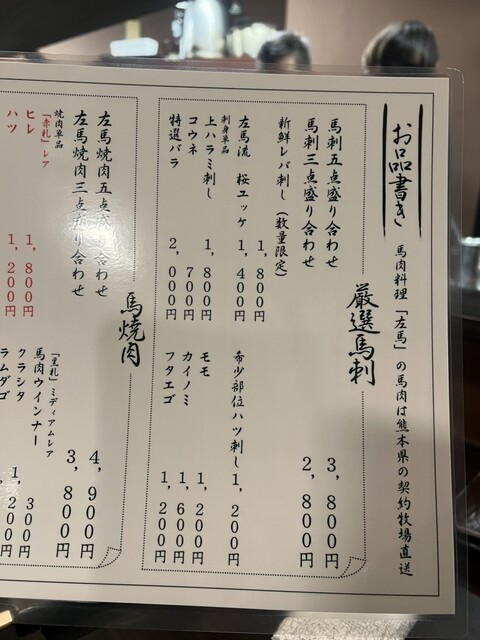 お品書き
馬肉料理「左馬」の馬肉は熊本県の契約牧場直送
厳選馬刺
馬刺五点盛り合わせ 3,800円
馬刺三点盛り合わせ 2,800円
新鮮レバ刺し(数量限定) 1,800円
左馬流 桜ユッケ 1,400円
希少部位ハツ刺し 1,200円
刺身単品
上ハラミ刺し 1,800円
コウネ 700円
特選バラ 2,000円
モモ 1,200円
カイノミ 1,600円
フタエゴ 1,200円
馬焼肉
左馬焼肉五点盛り合わせ 4,900円
左馬焼肉三点盛り合わせ 3,800円
焼肉単品
「赤札」レア
ヒレ 1,800円
ハツ 1,200円
「黒札」ミディアムレア
馬肉ウインナー 300円
クラシタ 1,200円
ラムダゴ